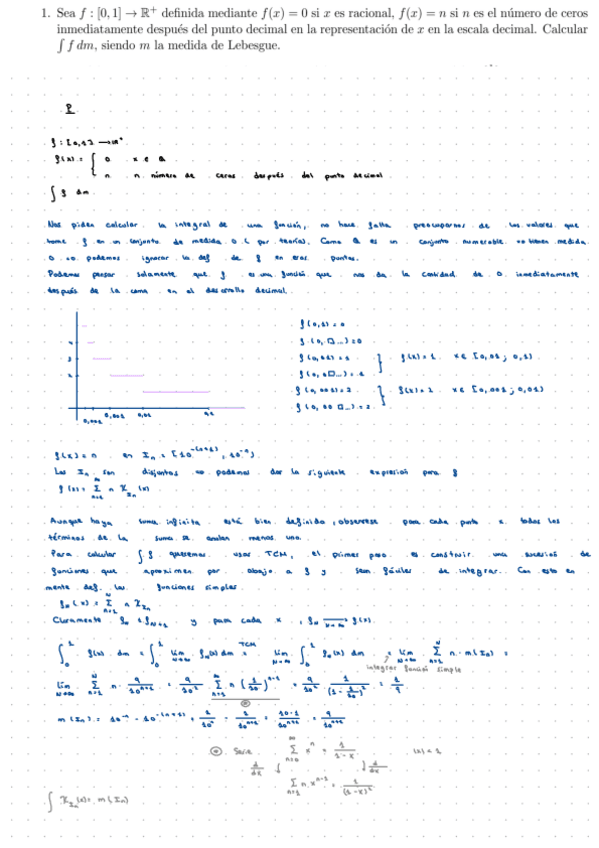 1. Sea f : [0, 1] → ℝ⁺ definida mediante f(x) = 0 si x es racional, f(x) = n si n es el número de ceros
inmediatamente después del punto decimal en la representación de x en la escala decimal. Calcular
∫ f dm, siendo m la medida de Lebesgue.
f : [0,1] → ℝ⁺
f(x) = { 0 x ∈ Q
n n número de ceros después del punto decimal
∫ f dm
Nos piden calcular la integral de una función, no hace falta preocuparnos de los valores que
tome f en un conjunto de medida 0 ( por teoría). Como Q es un conjunto numerable
podemos ignorar la def de f en esos puntos.
Podemos pensar solamente que f es una función que nos da la cantidad de 0 inmediatamente
después de la coma en el desarrollo decimal.
0,001 0,01 0,1
f(0,1) = 0
f(0,□...) = 0
f(0,01) = 1
f(0,0□...) = 1
} f(x) = 1 x ∈ [0,01 ; 0,1)
f(0,001) = 2
f(0,00□...) = 2
} f(x) = 2 x ∈ [0,001 ; 0,01)
f(x) = n en Iₙ = [10^-(n+1), 10^-n)
Los Iₙ son disjuntos podemos dar la siguiente expresión para f
f(x) = Σ_{n=1}^∞ n χ_{Iₙ}(x)
Aunque haya suma infinita está bien definido, obsérvese para cada punto x todos los
términos de la suma se anulan menos uno.
Para calcular ∫ f queremos usar TCM, el primer paso es construir una sucesión de
funciones que aproximen por abajo a f y sean fáciles de integrar. Con esto en
mente def. las funciones simples
f_N(x) = Σ_{n=1}^N n χ_{Iₙ}
Claramente f_N ≤ f_{N+1} y para cada x, f_N →_{N→∞} f(x).
∫₀¹ f(x) dm = ∫₀¹ lim_{N→∞} f_N(x) dm =^{TCM} lim_{N→∞} ∫₀¹ f_N(x) dm = lim_{N→∞} Σ_{n=1}^N n · m(Iₙ) =
integrar función simple
lim_{N→∞} Σ_{n=1}^N n · 9/10^{n+1} = 9/10² Σ_{n=1}^∞ n (1/10)^{n-1} = 9/10² · 1/(1 - 1/10)² = 1/9
m(Iₙ) = 10^-n - 10^-(n+1) = 1/10^n - 1/10^{n+1} = 10-1/10^{n+1} = 9/10^{n+1}
Serie Σ_{n=0}^∞ xⁿ = 1/(1-x) |x| < 1
d/dx ↓ ↓ d/dx
Σ_{n=1} n x^{n-1} = 1/(1-x)²
∫ χ_{Iₙ}(x) = m(Iₙ)